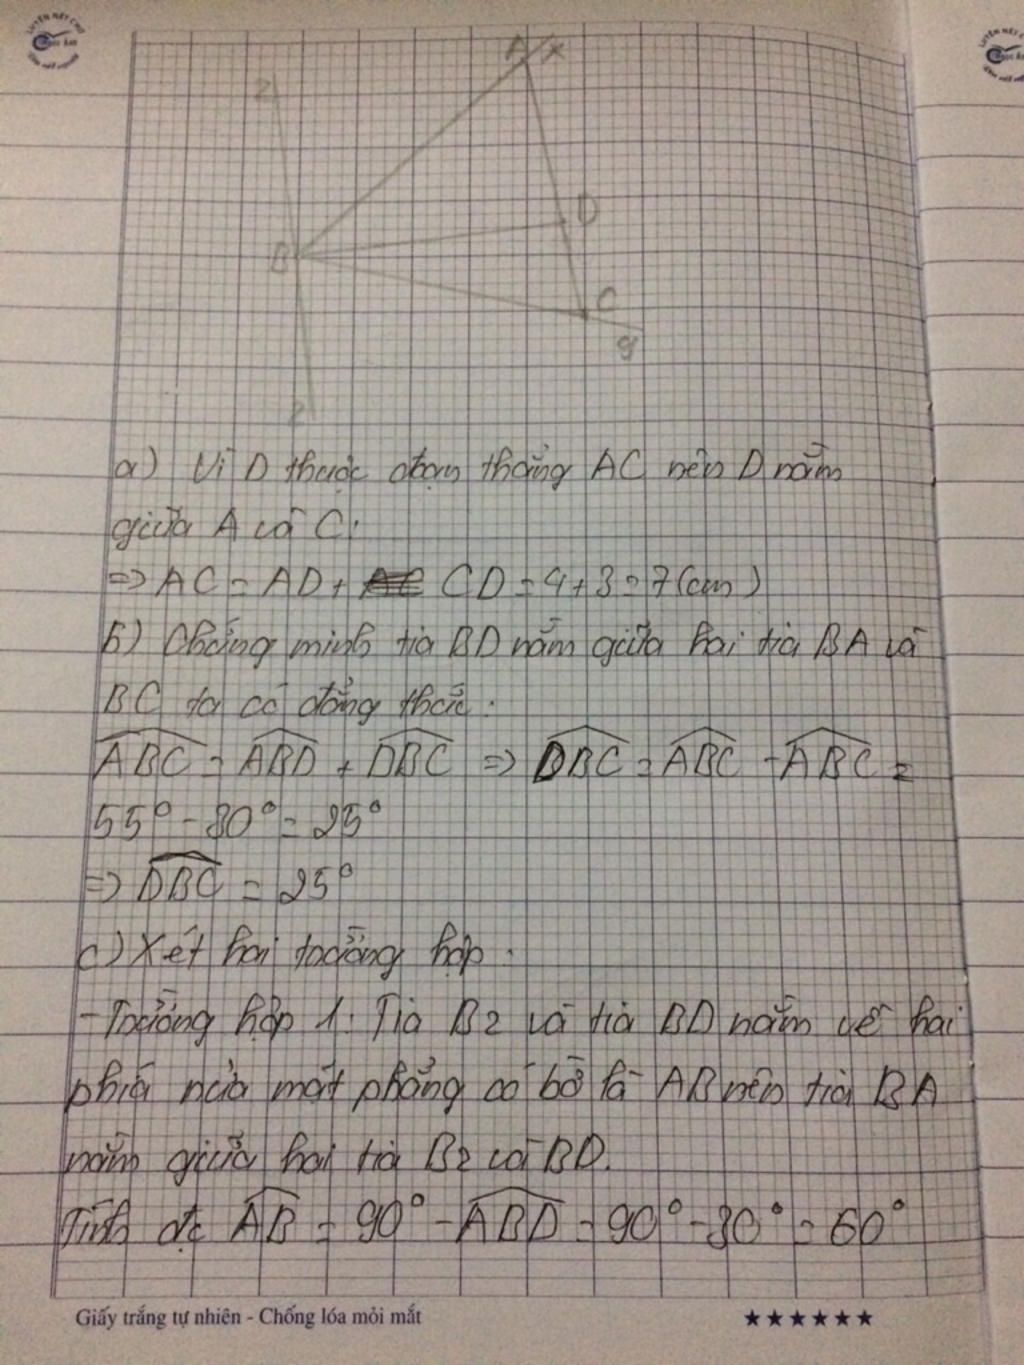 LUYỆN NÉT CHỮ
A x
z
D
B
C
y
z
a) Vì D thuộc đoạn thẳng AC nên D nằm
giữa A và C.
=> AC = AD + CD = 4 + 3 = 7 (cm)
b) Chứng minh tia BD nằm giữa hai tia BA và
BC ta có đẳng thức:
ABC = ABD + DBC => DBC = ABC - ABC =
55° - 30° = 25°
=> DBC = 25°
c) Xét hai trường hợp:
- Trường hợp 1: Tia Bz và tia BD nằm về hai
phía nửa mặt phẳng có bờ là AB nên tia BA
nằm giữa hai tia Bz và BD.
Tính đc AB = 90° - ABD = 90° - 30° = 60°
Giấy trắng tự nhiên - Chống lóa mỏi mắt